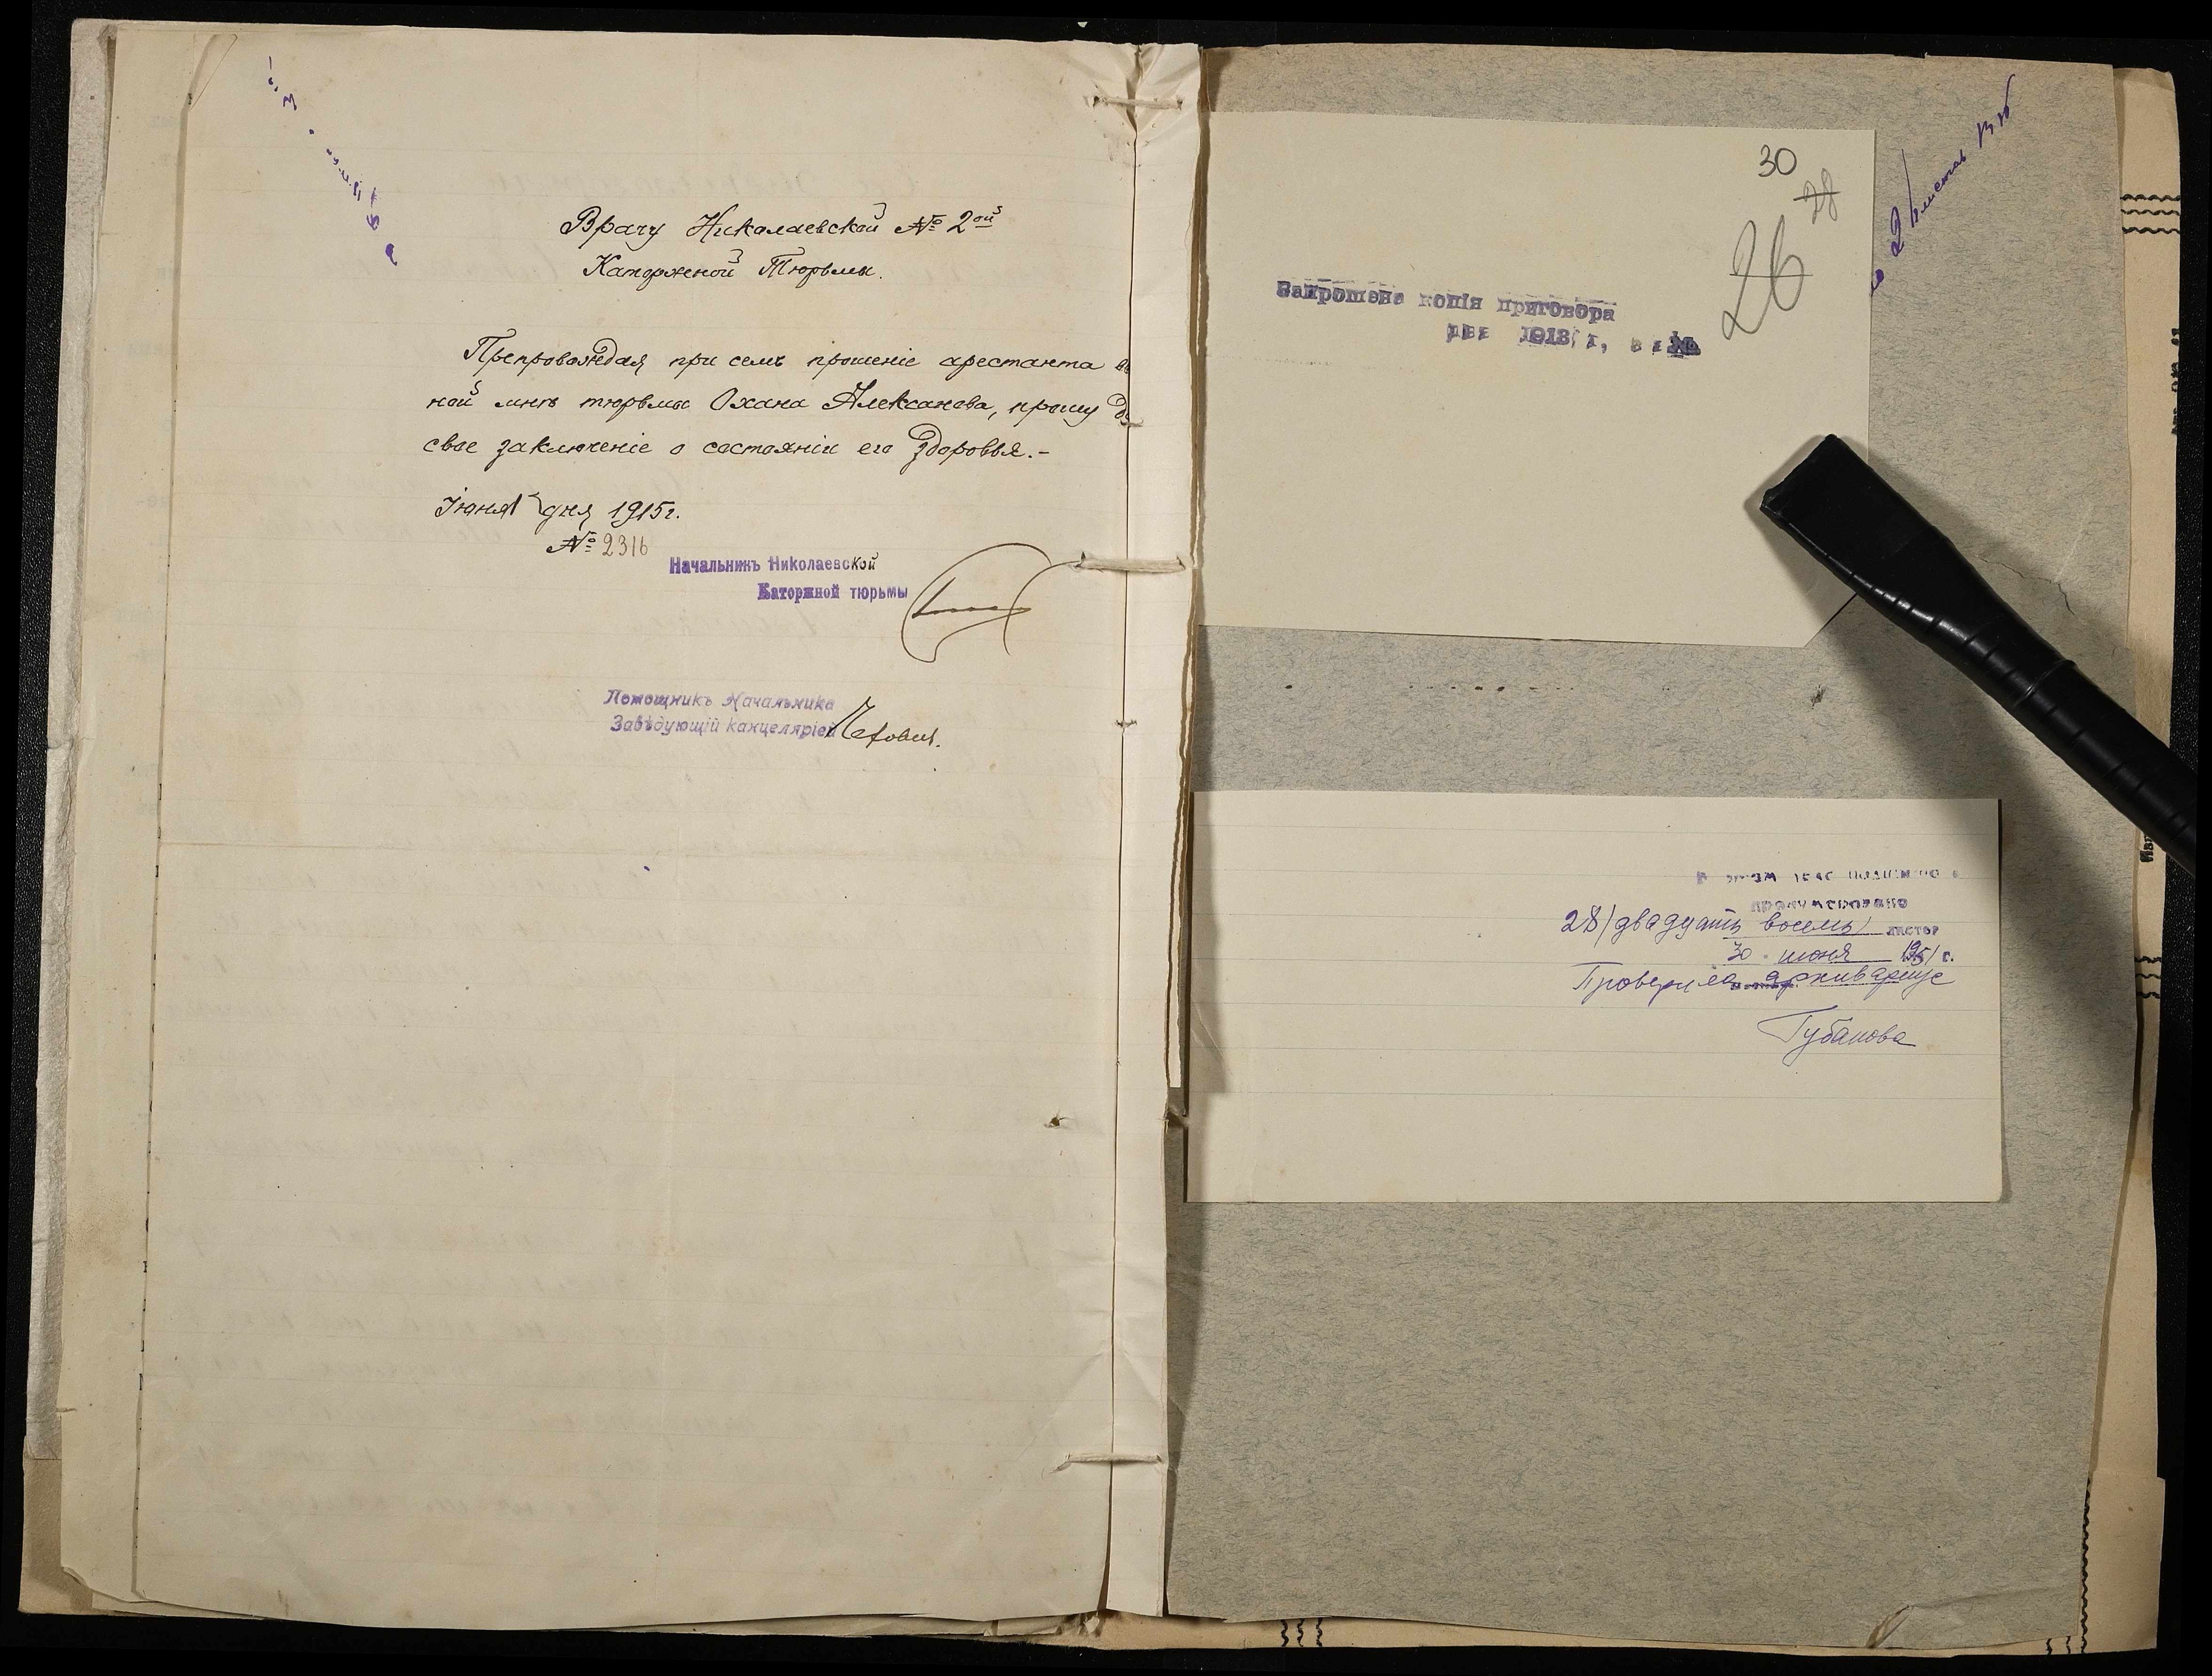 Врачу Николаевской № 2ой
Каторжной Тюрьмы.
Препровождая при семъ прошеніе арестанта
ной мнѣ тюрьмы Охана Алексанова, прошу
свое заключеніе о состояніи его здоровья.-
Іюня дня 1915г.
№ 2316
Начальникъ Николаевской
Каторжной тюрьмы
Помощникъ Начальника
Завѣдующій канцеляріей
30
28
26
Запрошена копія приговора
1913 г, №
листов
пронумеровано
28/двадцать восемь/ листов
30 июня 1951 г.
Проверила архивариус
Губанова